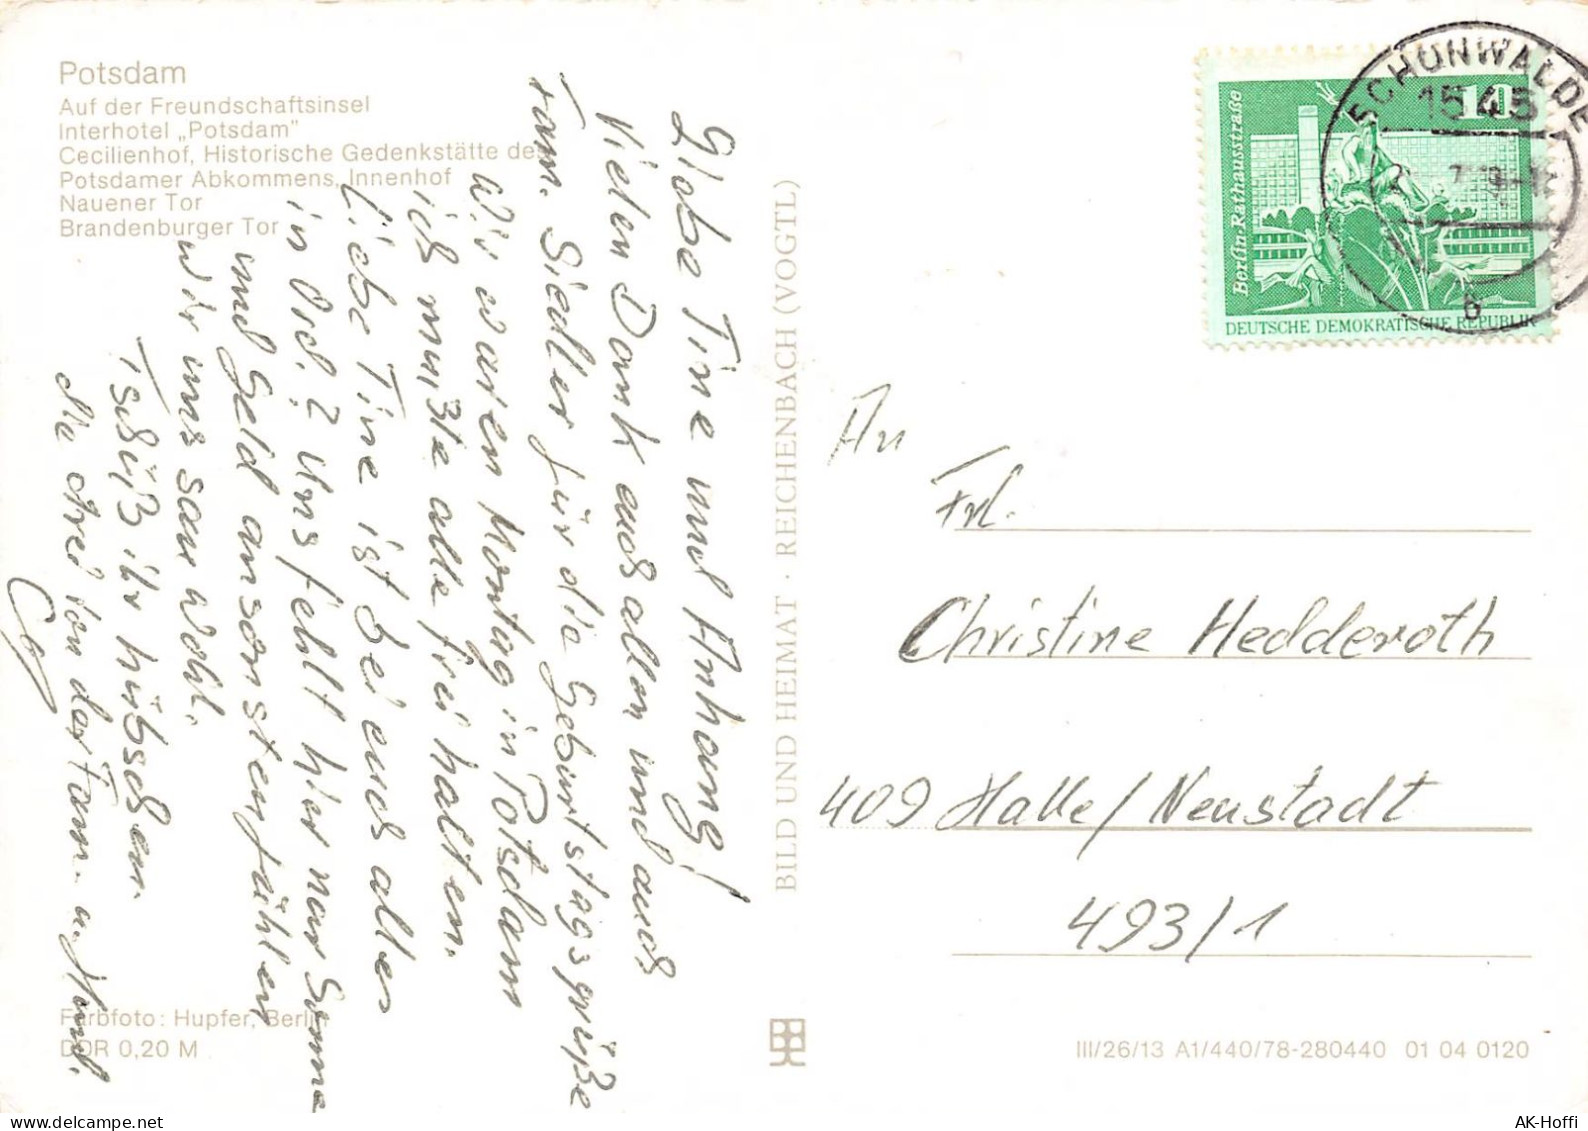 Potsdam
Auf der Freundschaftsinsel
Interhotel „Potsdam"
Cecilienhof, Historische Gedenkstätte des
Potsdamer Abkommens, Innenhof
Nauener Tor
Brandenburger Tor
Liebe Tine und Anhang!
Vielen Dank euch allen und auch
Fam. Siedler für die Geburtstagsgrüße
Wir waren Montag in Potsdam
ich mußte alle frei halten.
Liebe Tine ist bei euch alles
in Ord.? Uns fehlt hier nur Sonne
und Geld ansonsten fühlen
wir uns sau wohl.
Tschüß ihr hübschen
die drei von der Fam. u. Hund.
Farbfoto: Hupfer, Berlin
DDR 0,20 M
BILD UND HEIMAT · REICHENBACH (VOGTL)
SCHÖNWALDE
1545
b
10
Berlin-Rathausstraße
DEUTSCHE DEMOKRATISCHE REPUBLIK
An
Frl.
Christine Hedderoth
409 Halle/Neustadt
493/1
III/26/13 A1/440/78-280440 01 04 0120
AK-Hoffi